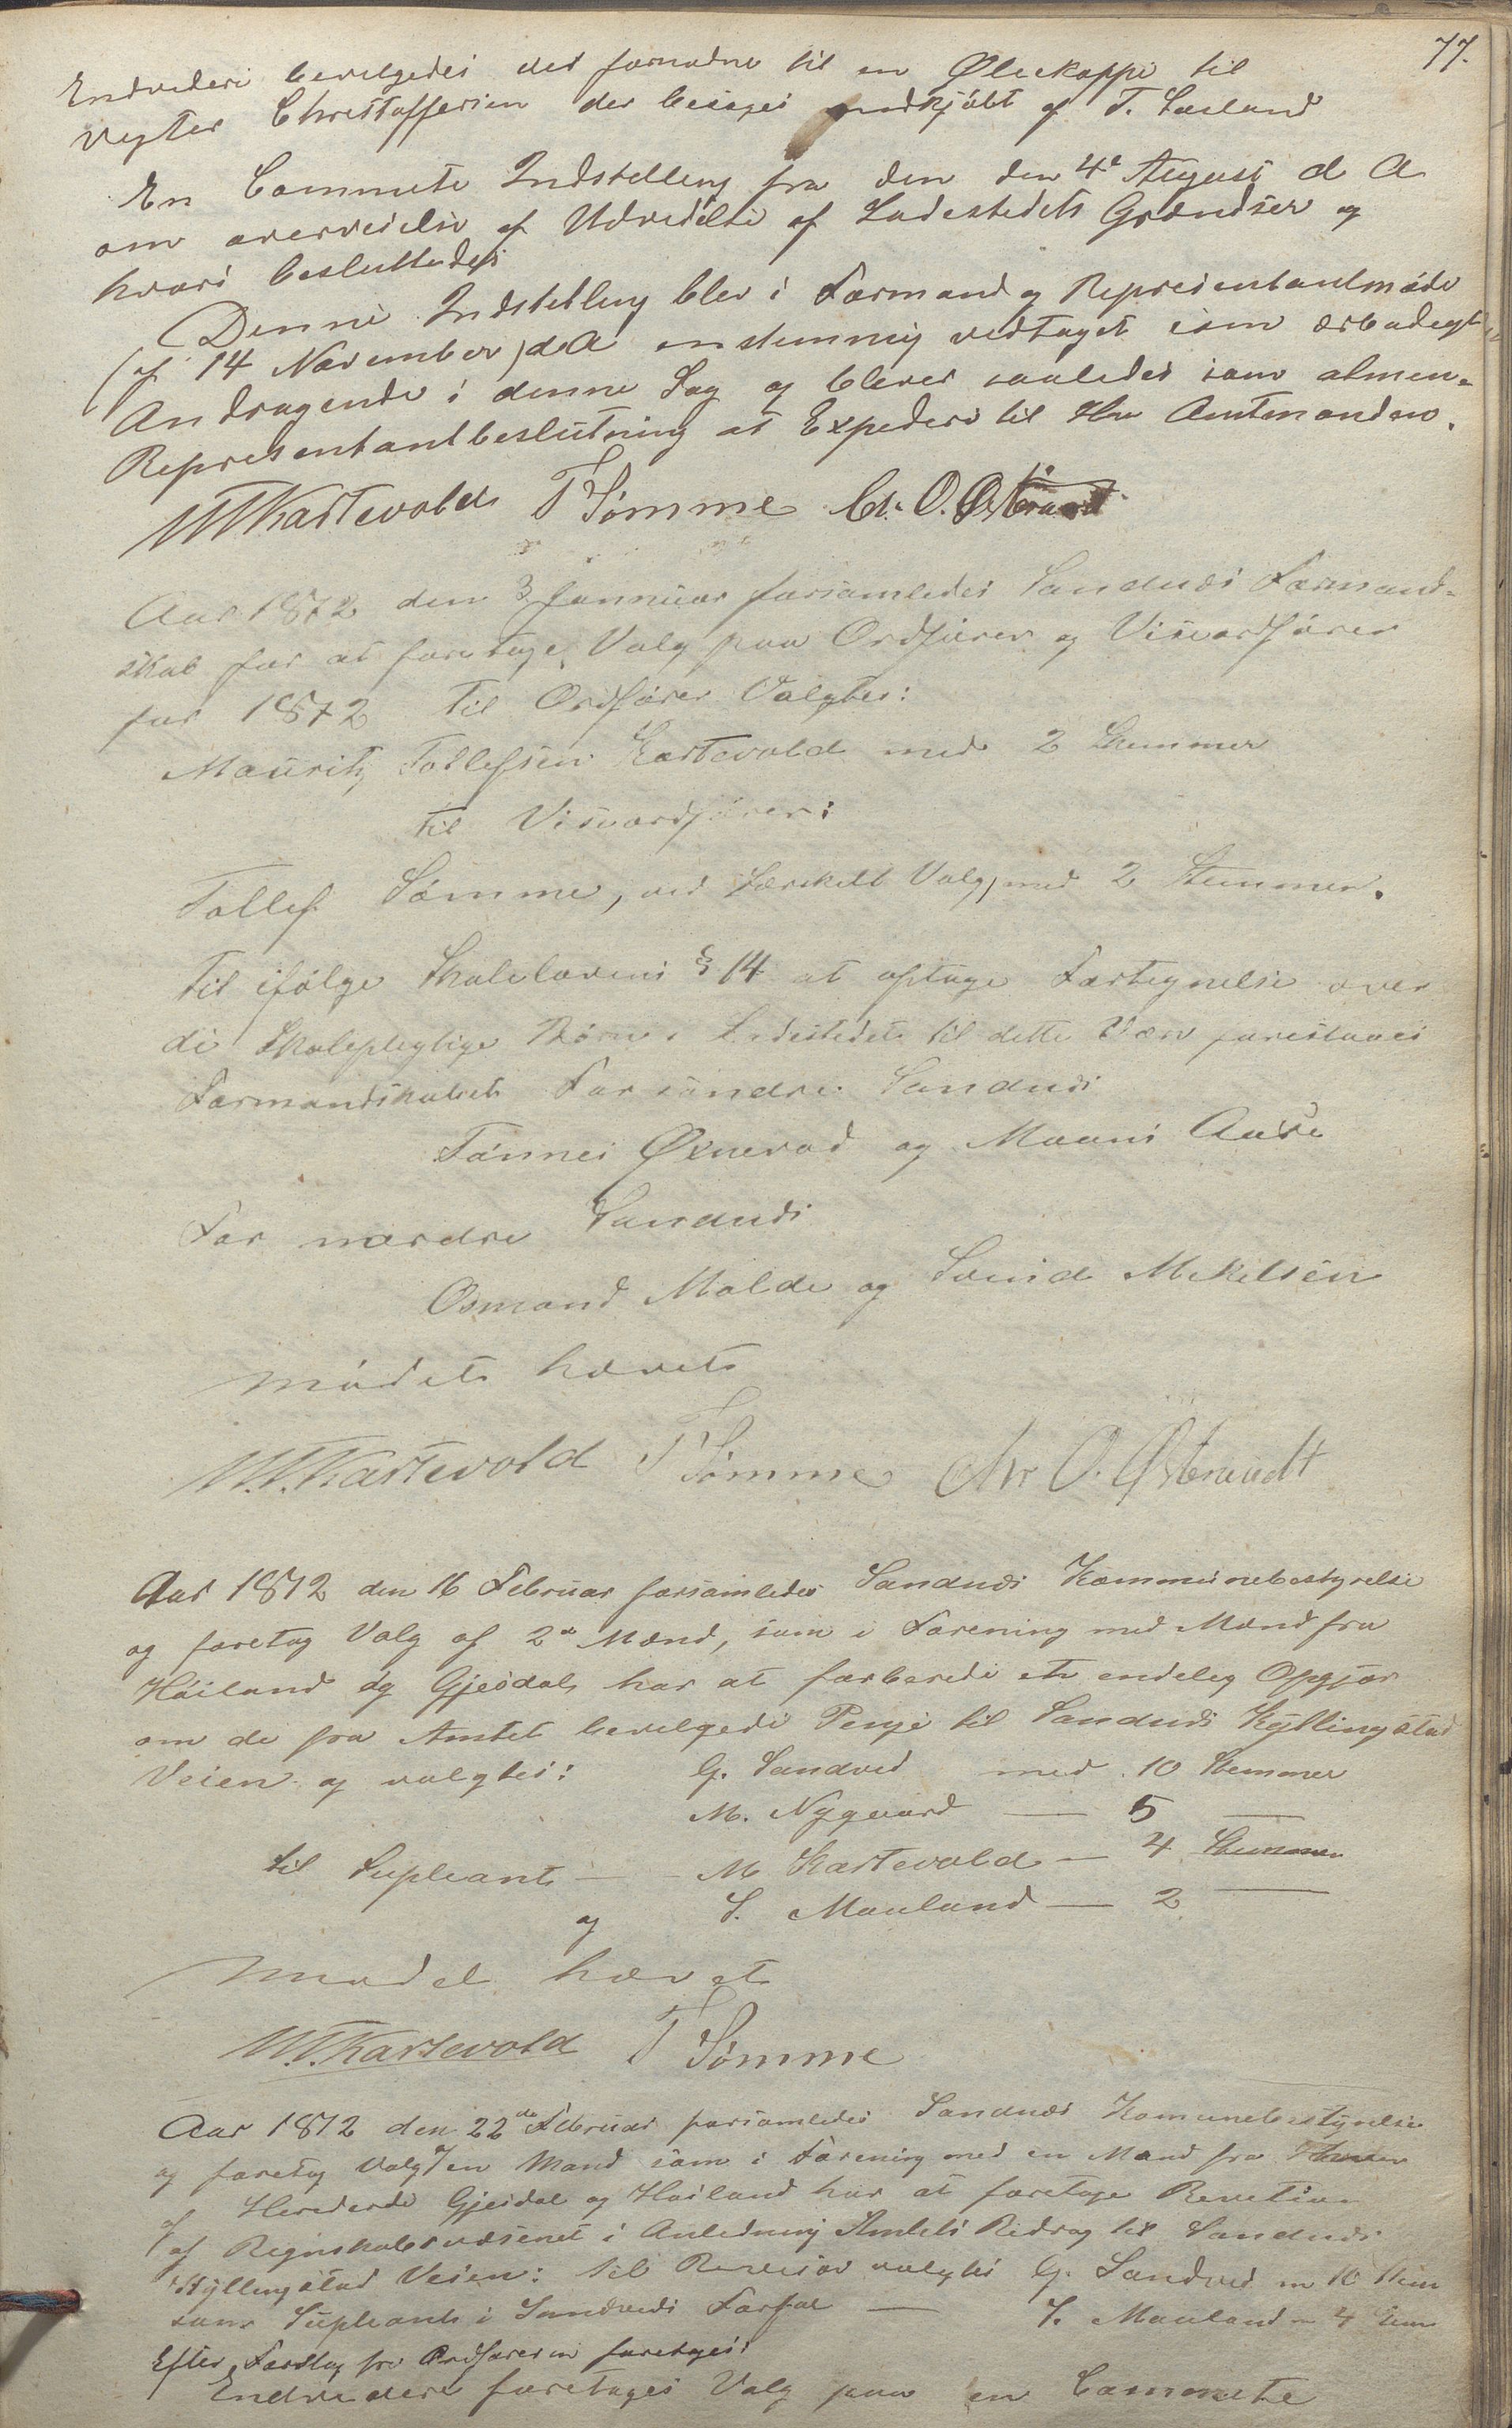 77.
Endvidere bevilgedes det fornødne til en Øliekappe til
Vegter Christoffersen der besøges indkjøbt af T. Særland
En Commite Indstelling fra den den 4de August d A
om overveielse af Udvidelse af Ladestedets Grændser og
hvori besluttedes
Denne Indstelling blev i Formand og Representantmøde
(af 14 November) d A enstemmig vedtaget som ærbødigst
Andragende i denne Sag og bliver saaledes som almen-
Representantbeslutning at Expedere til Hr Amtmanden.
M T Kartevold T Sømme Chr. O. Østbrundt
Aar 1872 den 3 Jannuar forsamledes Sandnes Formand-
skab for at foretage Valg paa Ordfører og Viseordfører
for 1872 Til Ordfører Valgtes:
Mauritz Tollefsen Kartevold med 2 Stemmer
til Viseordfører:
Tollef Sømme, ved Særskilt Valg, med 2 Stemmer.
Til ifølge Skolelovens § 14 at optage Fortegnelse over
de Skolepligtige Børn i Ladestedet til dette Hverv foreslaaes
Formandskabet For søndre Sandnes
Tønnes Øxnevad og Maans Aase
For nordre Sandnes
Osmond Malde og Svend Mikelsen
Mødet hævet
M. T. Kartevold T Sømme Chr O. Østbrundt
Aar 1872 den 16 Februar forsamledes Sandnes Kommunebestyrelse
og foretog Valg af 2de Mænd, som i Forening med Mænd fra
Høiland og Gjesdal, har at forberede et endelig Opgjør
om de fra Amtet bevilgede Penge til Sandnes Kyllingstad
Veien og valgtes: G. Sandved med 10 Stemmer
M. Nygaard — 5 —
til Supleant — M Kartevold — 4 Stemmer
og S. Mauland — 2 —
Mødet hævet
M. T. Kartevold T Sømme
Aar 1872 den 22de Februar forsamledes Sandnes Komunebestyrelse
og foretog Valg af en Mand som i Forening med en Mand fra
af Herederde Gjesdal og Høiland har at foretage Revetion
af Regnskabsvæsenet i Anledning Amtets Bidrag til Sandnes
Kyllingstad Veien: til Revisor valgtes G. Sandved m 10 Stem
som Supleant i Sandveds Forfal — S. Mauland m 4 Stem
Efter Forslag fra Ordføreren foretoges:
Endvidere foretages Valg paa en Committe